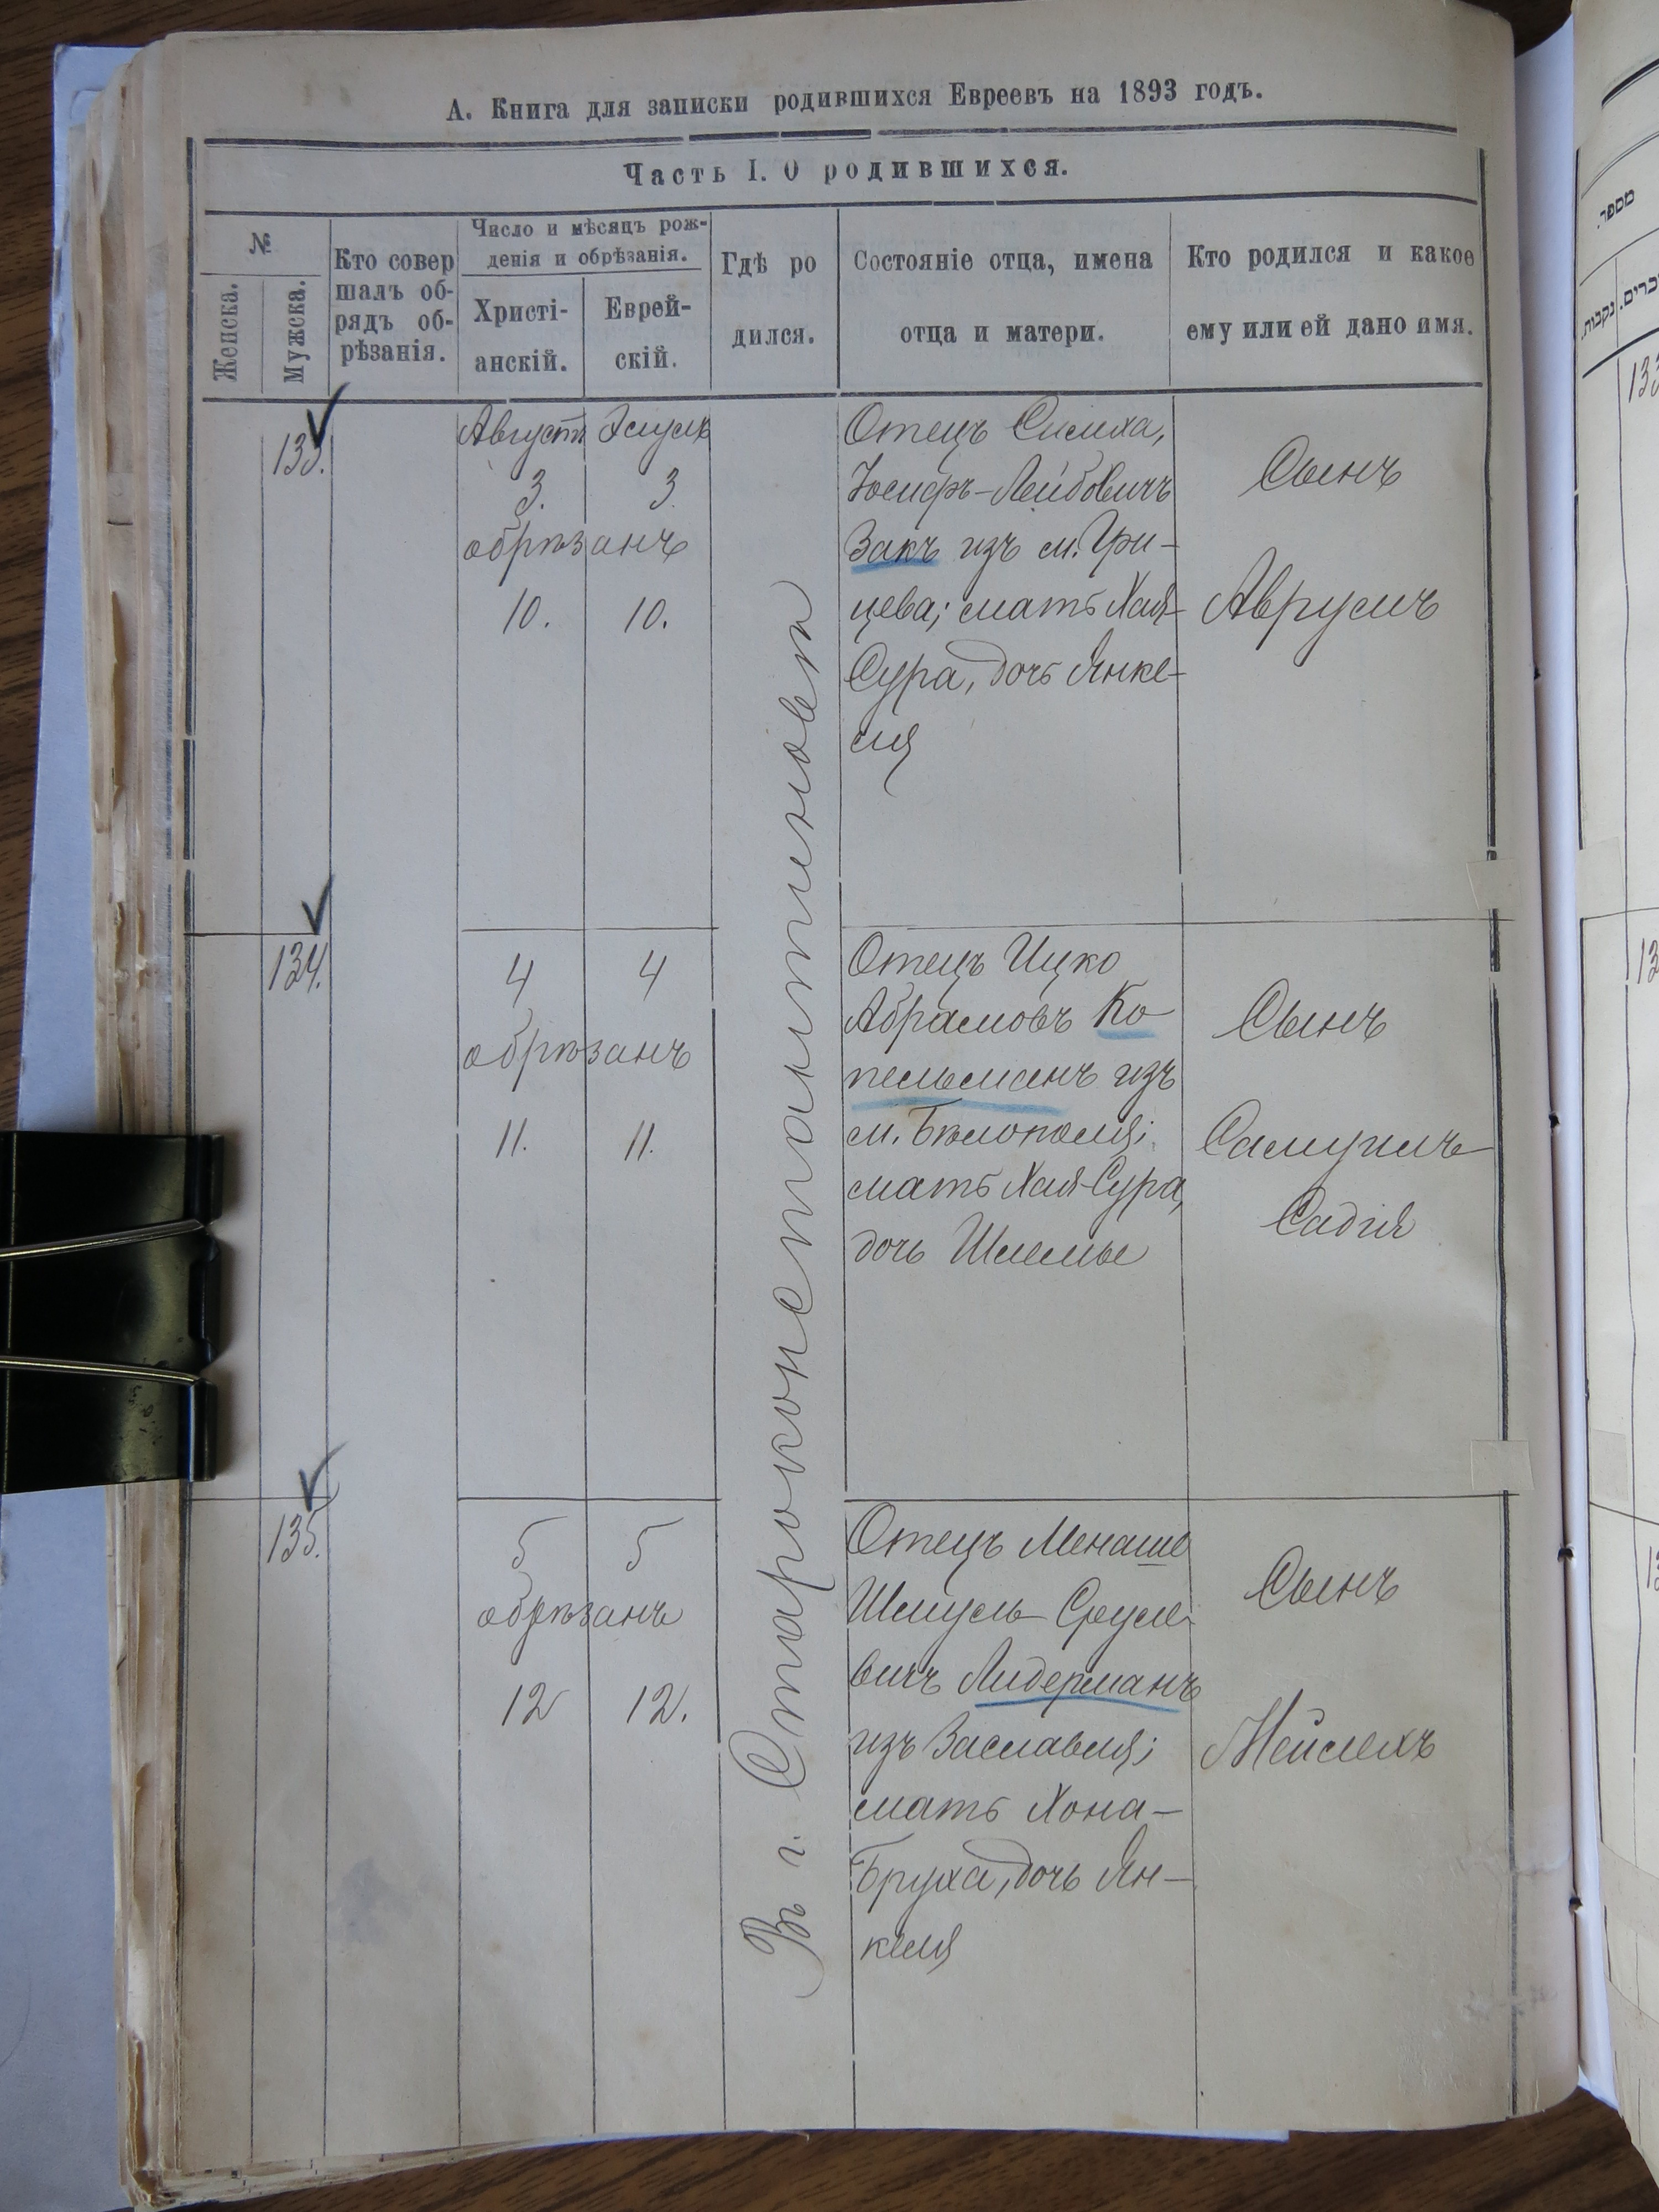 А. Книга для записки родившихся Евреевъ на 1893 годъ.
Часть I. О родившихся.
№
Женска.
Мужска.
Кто совер
шалъ об-
рядъ об-
рѣзанія.
Число и мѣсяцъ рож-
денія и обрѣзанія.
Христі-
анскій.
Еврей-
скій.
Гдѣ ро
дился.
Состояніе отца, имена
отца и матери.
Кто родился и какое
ему или ей дано имя.
133.
Августъ Элулъ
3. 3
обрѣзанъ
10. 10.
Отецъ Симха,
Іосифъ-Лейбовичъ
Закъ изъ м. Гри-
цева; мать Хая-
Сура, дочь Янке-
ля
Сынъ
Аврумъ
134.
4 4
обрѣзанъ
11. 11.
Отецъ Ицко
Абрамовъ Ко
пельманъ изъ
м. Бѣлополя;
мать Хая-Сура,
дочь Шлемы
Сынъ
Самуилъ
Садія
135.
5 5
обрѣзанъ
12 12.
Отецъ Менаше
Шмуль Сруле-
вичъ Лидерманъ
изъ Заславля;
мать Хона-
Бруха, дочь Ян-
келя
Сынъ
Мейлехъ
Въ г. Староконстантиновѣ
מספר.
נקבות.
זכרים.